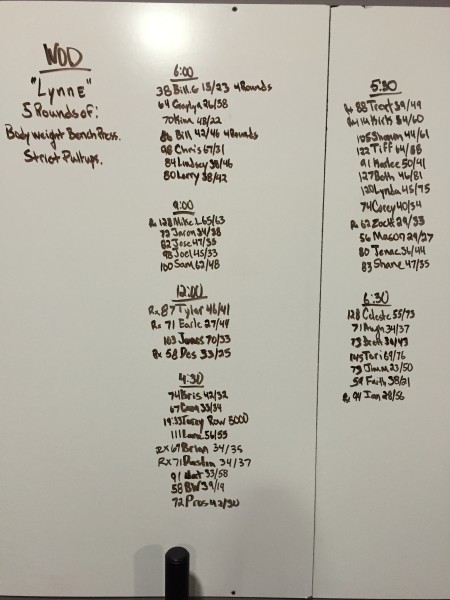 WOD
"Lynne"
5 Rounds of:
Body weight Bench Press.
Strict Pullups.
6:00
38 Bill.G 15/23 4 Rounds
64 26/58
70 Kim 48/22
86 Bill 42/46 4 Rounds
98 Chris 67/31
84 Lindsey 38/46
80 Larry 38/42
9:00
Rx 128 Mike L 65/63
72 Jaron 34/38
82 Jose 47/35
98 Joel 45/53
100 Sam 62/48
12:00
Rx 87 Tyler 46/41
Rx 71 Earle 27/44
103 James 70/33
Rx 58 Des 33/25
4:30
74 Kris 42/32
67 33/34
19:33 Row 5000
111 Lana 56/55
Rx 69 Brian 34/35
Rx 71 34/37
91 33/58
58 BW 39/19
72 42/30
5:30
Rx 88 Trent 39/49
Rx 114 Kirk 54/60
105 Shawn 44/61
122 Tiff 64/58
91 50/41
127 Beth 46/81
120 Lynda 45/75
74 Corey 40/34
Rx 62 Zack 29/33
56 Mason 29/27
80 36/44
83 Shane 47/35
6:30
128 Celeste 55/73
71 34/37
73 Scott
145 Tori 69/76
73 Jim.M 23/50
59 Faith 38/21
Rx 94 Ian 28/56